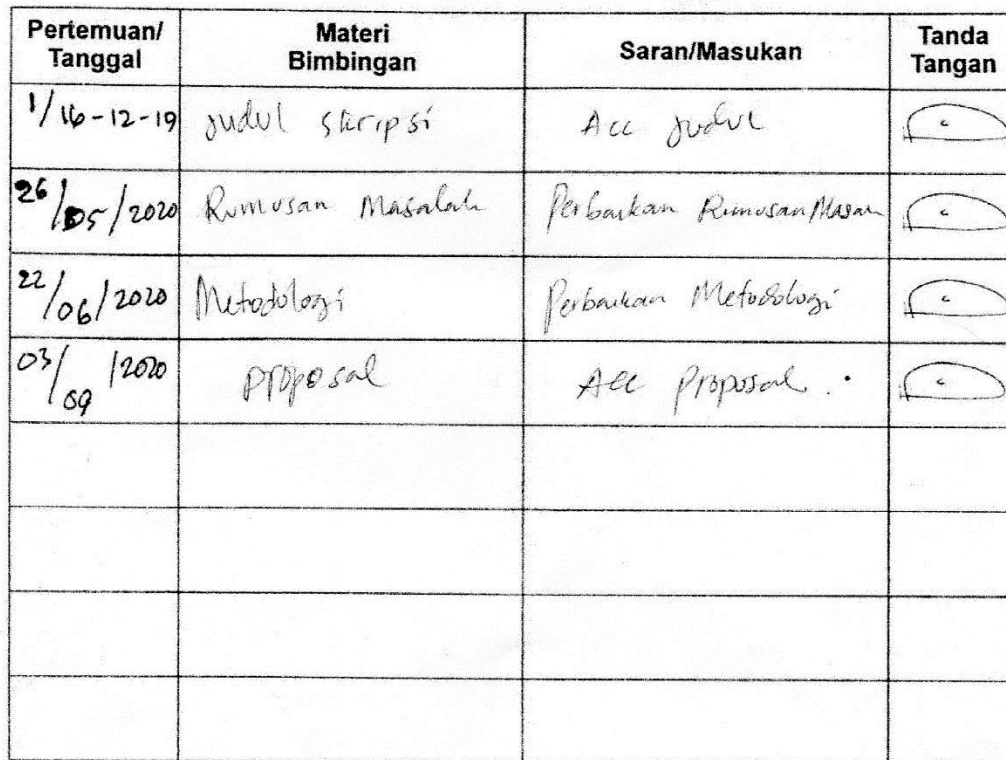 Pertemuan/ Tanggal Materi Bimbingan Saran/Masukan Tanda Tangan
1/16-12-19 Judul skripsi Acc Judul
26/05/2020 Rumusan Masalah Perbaikan Rumusan Masalah
22/06/2020 Metodologi Perbaikan Metodologi
03/09/2020 proposal Acc proposal.